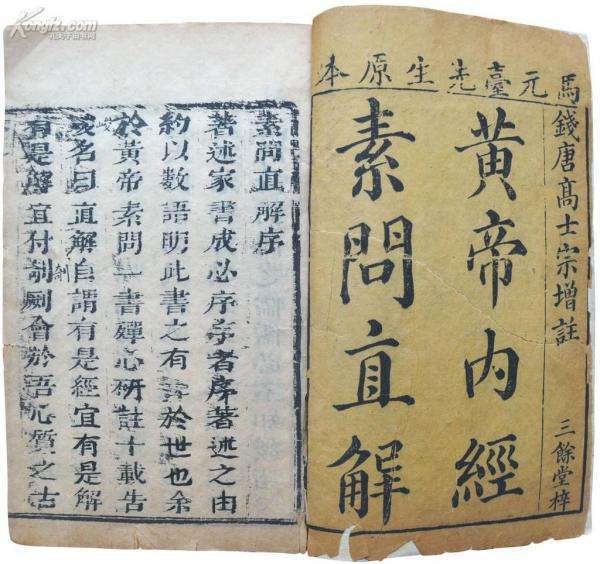 馬元臺先生原本
錢唐髙士宗增註
黃帝內經
素問直解
三餘堂梓
素問直解序
著述家書成必序序者序著述之由
約以數語明此書之有於世也余
於黃帝素問一書殫心研註十載告
成名曰直解自謂有是經宜有是解
有是解宜付剞劂會於語心質之古
Kongfz.com
孔夫子旧书网